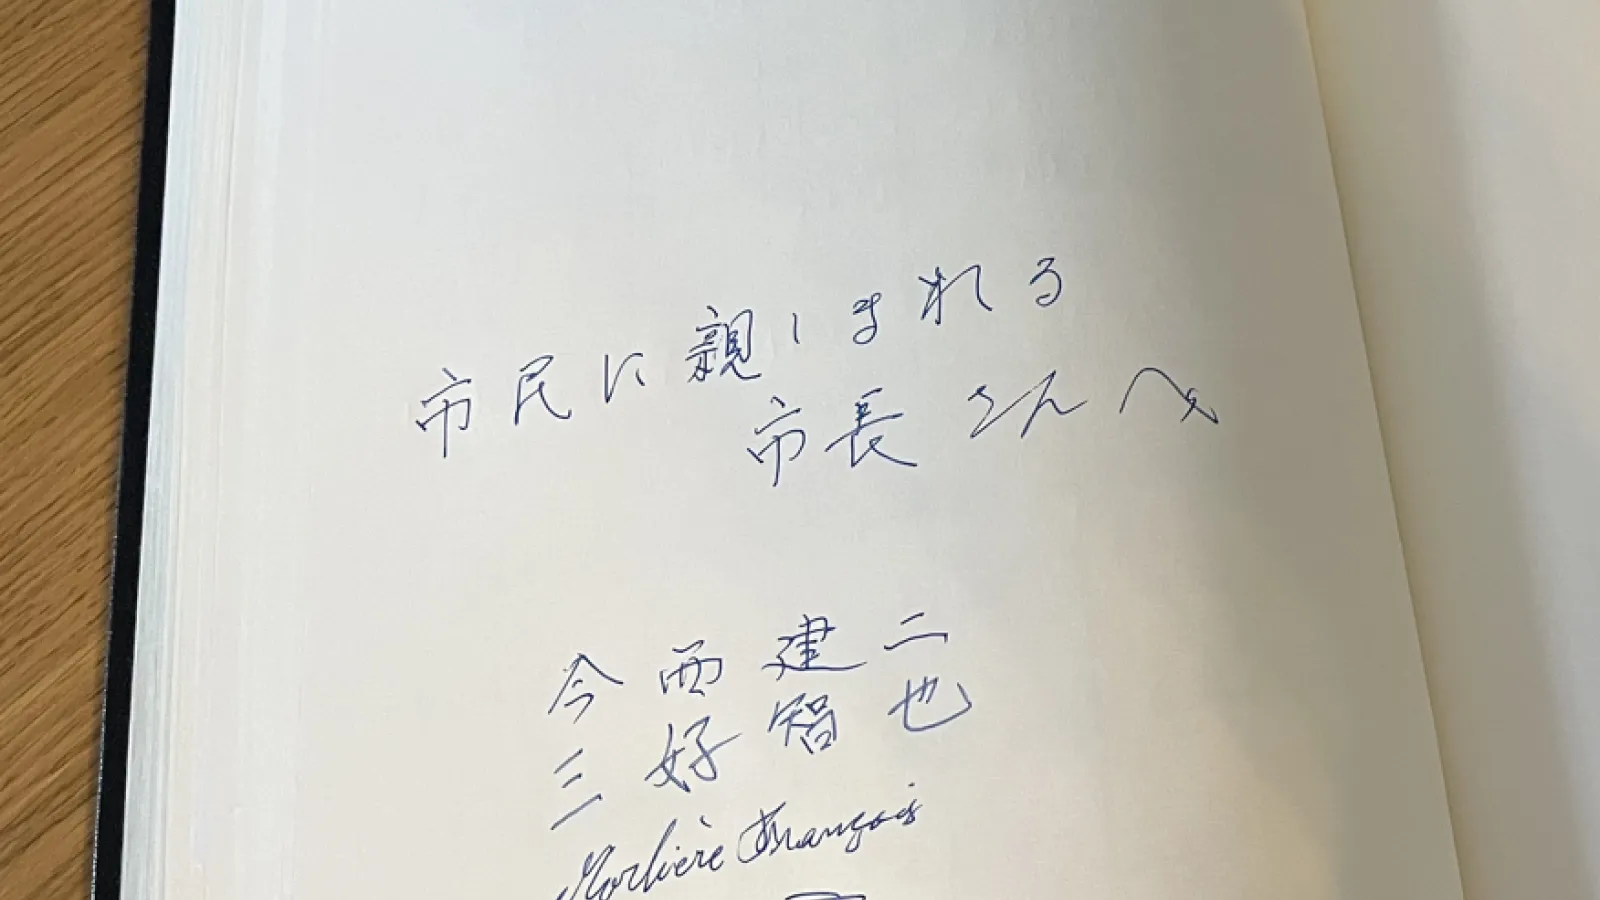 市民に親しまれる
市長さんへ
今西建二
三好智也
Morlière François